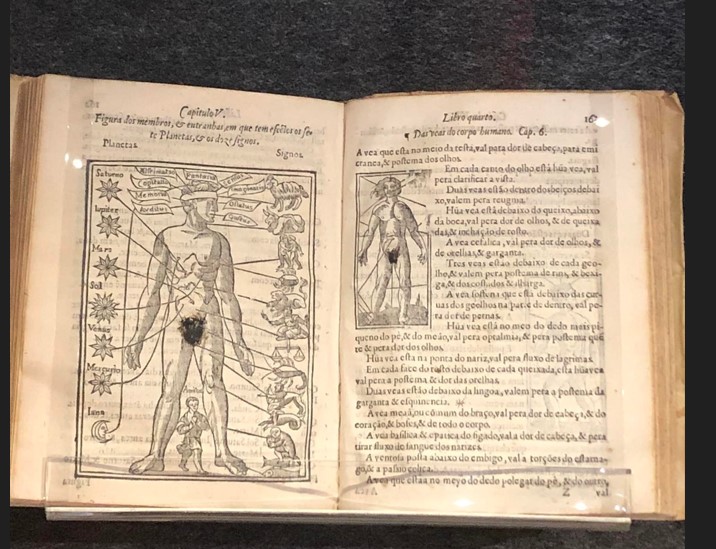 Capitulo V.
Figura dos membros, & entranhas, em que tem efeitos os se-
te Planetas, & os doze signos.
Planetas. Signos.
Saturno
Iupiter
Mars
Sol
Venus
Mercurio
Luna
Memoria
Fantasia
Olfatus
Gustus
Figura
Libro quarto. 16
Das veas do corpo humano. Cap. 6.
A vea que està no meo da testa, val pera dor de cabeça, para emi
cranea, & postema dos olhos.
Em cada canto do olho està hũa vea, val
pera clarificar a vista.
Duas veas estão dentro dos beiços debai
xo, valem pera
Hũa vea està debaixo do queixo, abaixo
da boca, val pera dor de olhos, & de queixa
das, & inchação de rosto.
A vea cefalica, val pera dor de olhos, &
de orelhas, & garganta.
Tres veas estão debaixo de cada geo-
lho, & valem pera postema de rins, & bexi-
ga, & dos costados & ilharga.
A vea sofena que està debaixo das cur-
uas dos geolhos na parte de dentro, val pe-
ra dor de pernas.
Hũa vea està no meo do dedo mais pi-
queno do pè, & do meão, val pera optalmia, & pera postema que
te & pera dor dos olhos.
Hũa vea està na ponta do nariz, val pera fluxo de lagrimas.
Em cada face do rosto debaixo de cada queixada, està hũa vea
val pera a postema, & dor das orelhas.
Duas veas estão debaixo da lingoa, valem pera a postema da
garganta & esquinencia.
A vea meaã, ou cõmum do braço, val pera dor de cabeça, & do
coração, & bofes, & de todo o corpo.
A vea basilica & epatica do figado, val a dor de cabeça, & pera
tirar fluxo de sangue dos narizes.
A ventosa posta abaixo do embigo, val a torções do estama-
go, & a paixão colica.
A vea que està no meyo do dedo polegar do pè, & do outro,
Z val